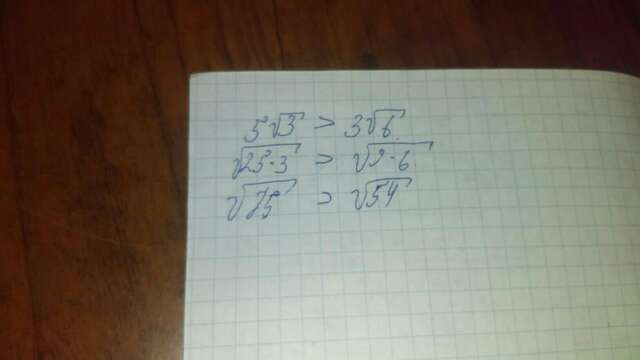 5√3 > 3√6
√25·3 > √9·6
√75 > √54